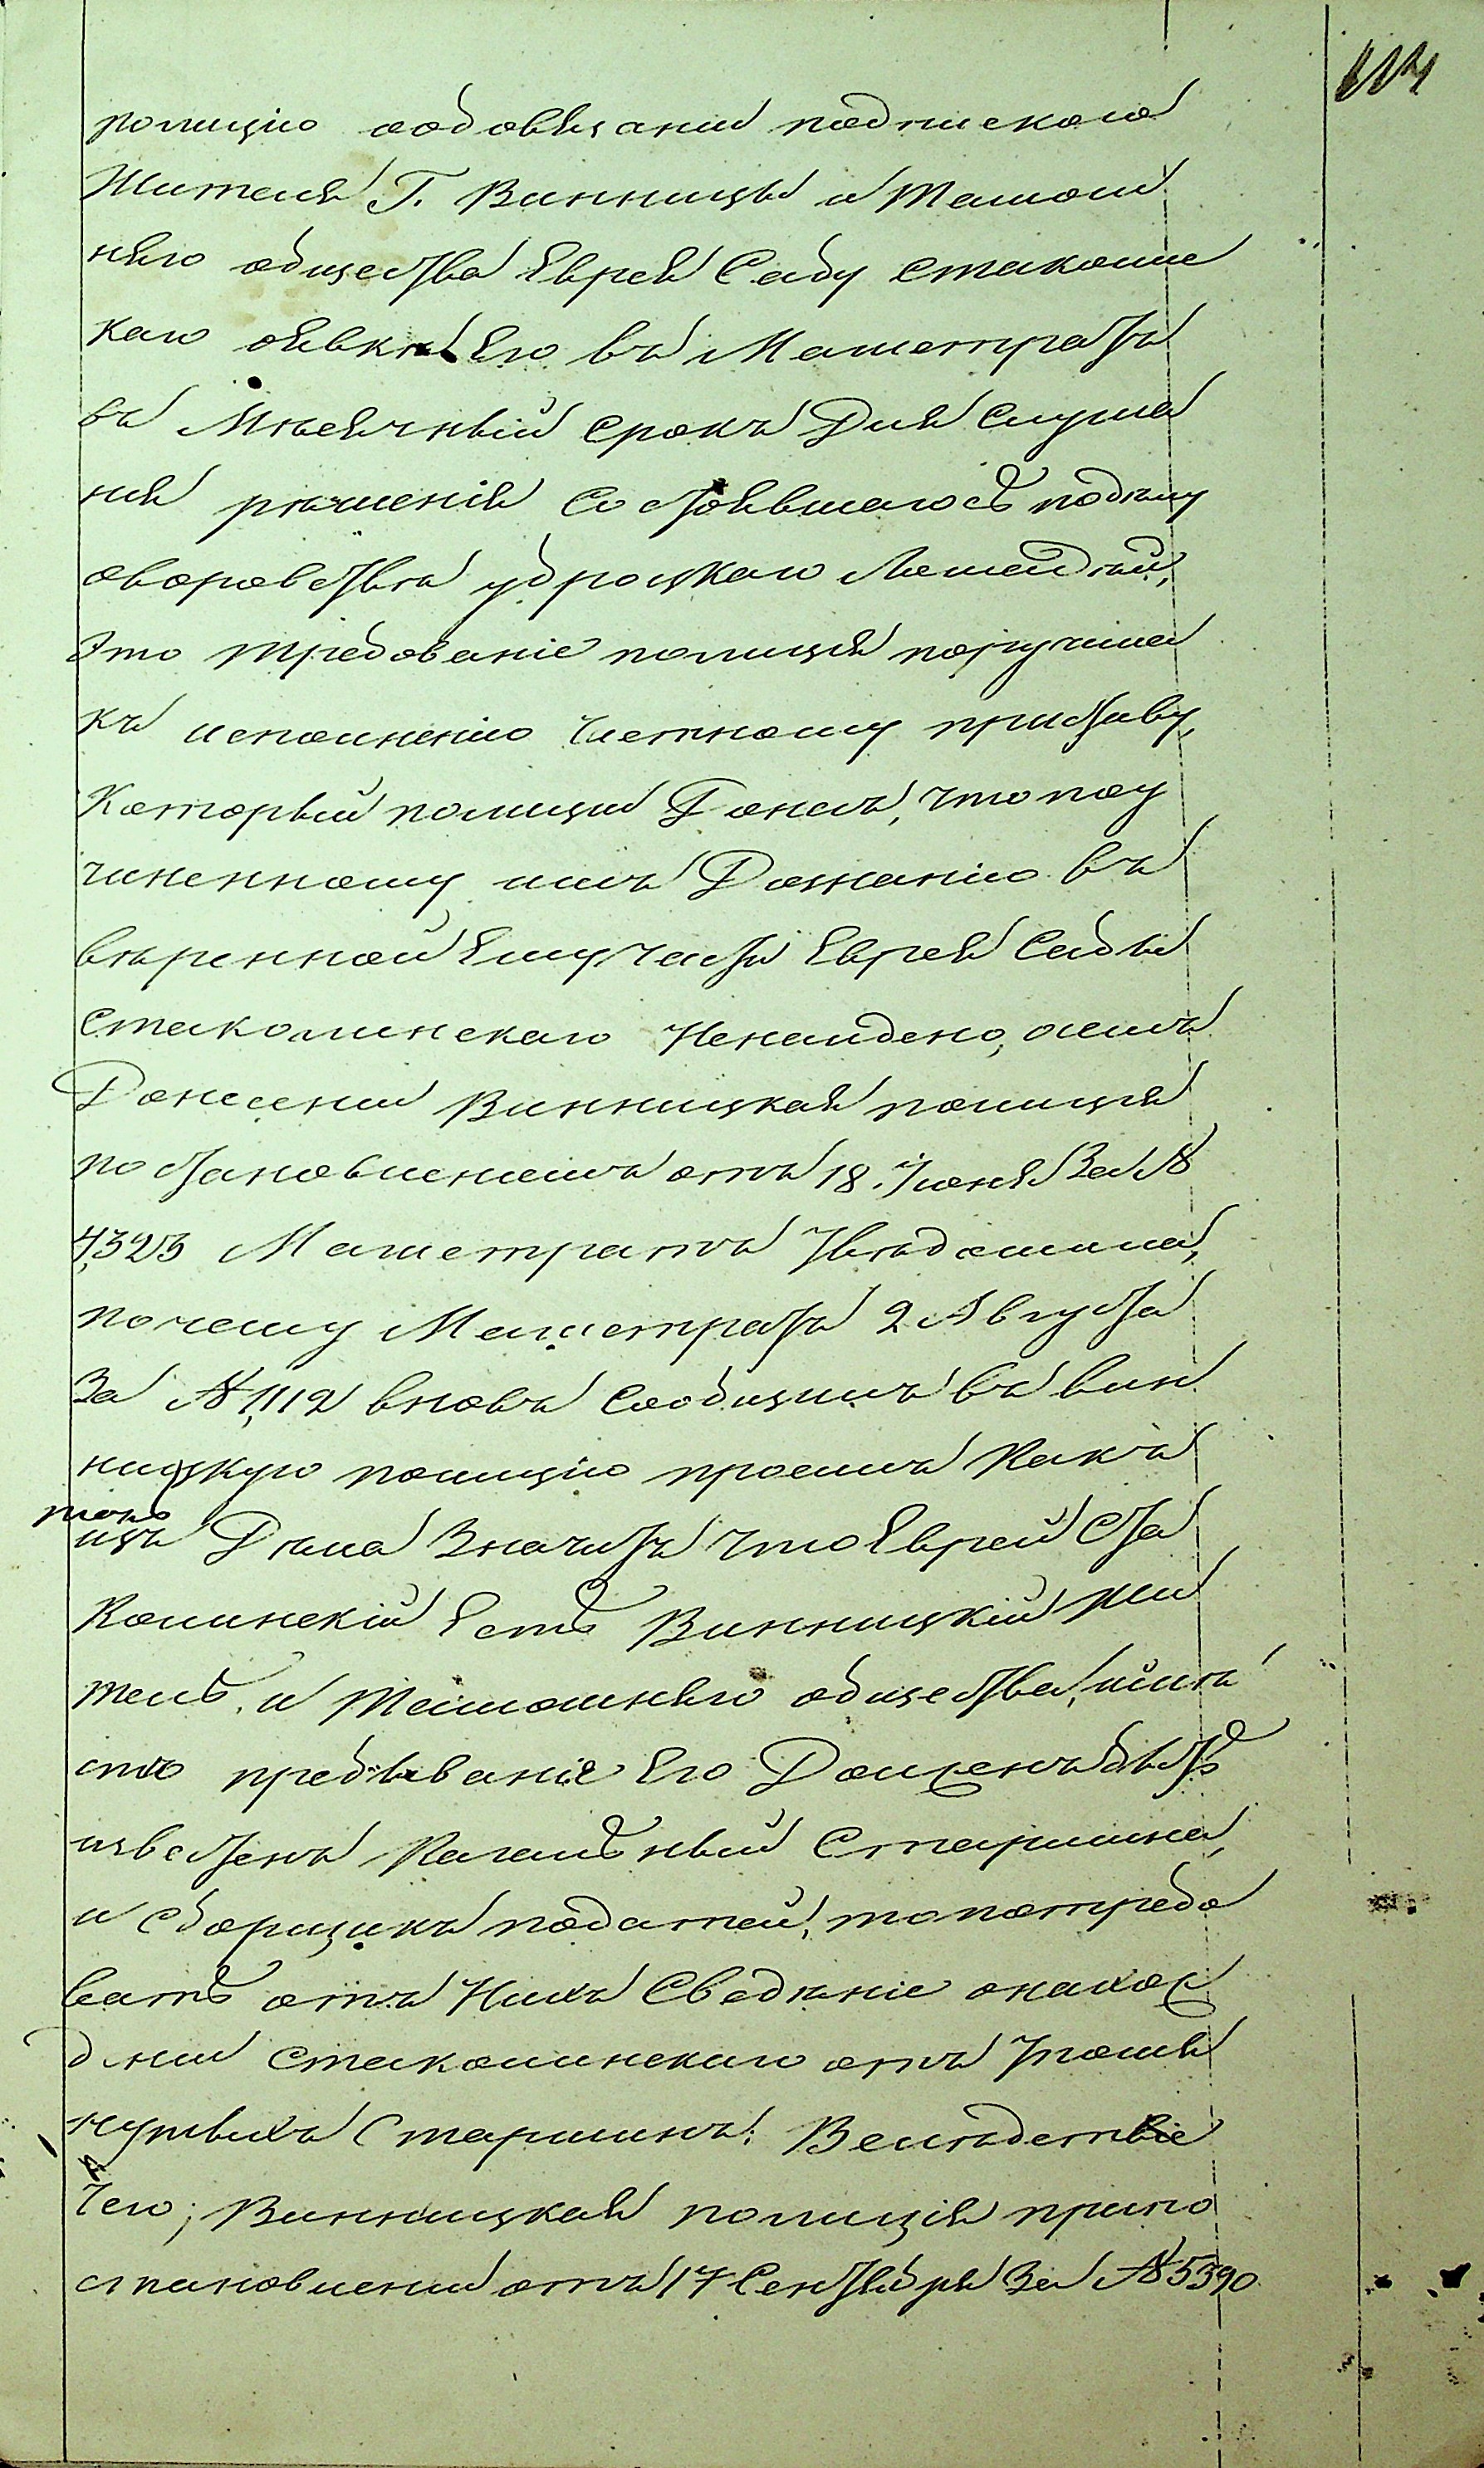 114
полицію ообовязаніи подпискою
Жителя Г. Винницы и Тамош
няго общества Еврея Сабу Стаколин
каго обявкѣ Его въ Магистратъ
въ Мѣсячный срокъ Для Слуша
нія рѣшенія Состоявшагось подѣлу
оворовствѣ уброцкаго Лошадѣй,
это требованіе полиція поручила
къ исполненію Частному приставу,
Который полиціи Донелъ, что поу
чиненному имъ Дознанію въ
ввѣренной Ему Части Еврея Сабы
Стаколинскаго Ненаидено, очемъ
Донесеніи Винницкая полиція
постановленіемъ отъ 18. Іюня За №
4,323 Магистратъ Увѣдомила,
почему Магистратъ 2 Августа
За № 1,112 вновь Сообщилъ въ вин
ницкую полицію просилъ Какъ
токо
изъ Дѣла Значитъ что Еврей Ста
Колинскій Есть Винницкій жи
тель, и Тамошняго общества, имѣ
сто пребываніе Его Долженъ быть
извѣстенъ Кагальный Старшина,
и Сборщикъ податей, то потребо
вать отъ Нихъ Свѣдѣніе онахож
дѣніи Стаколинскаго отъ Упомя
нутыхъ Старшинъ: Вслѣдствіе
Чего; Винницкая полиція припо
становленіи отъ 17 Сентября За № 5390